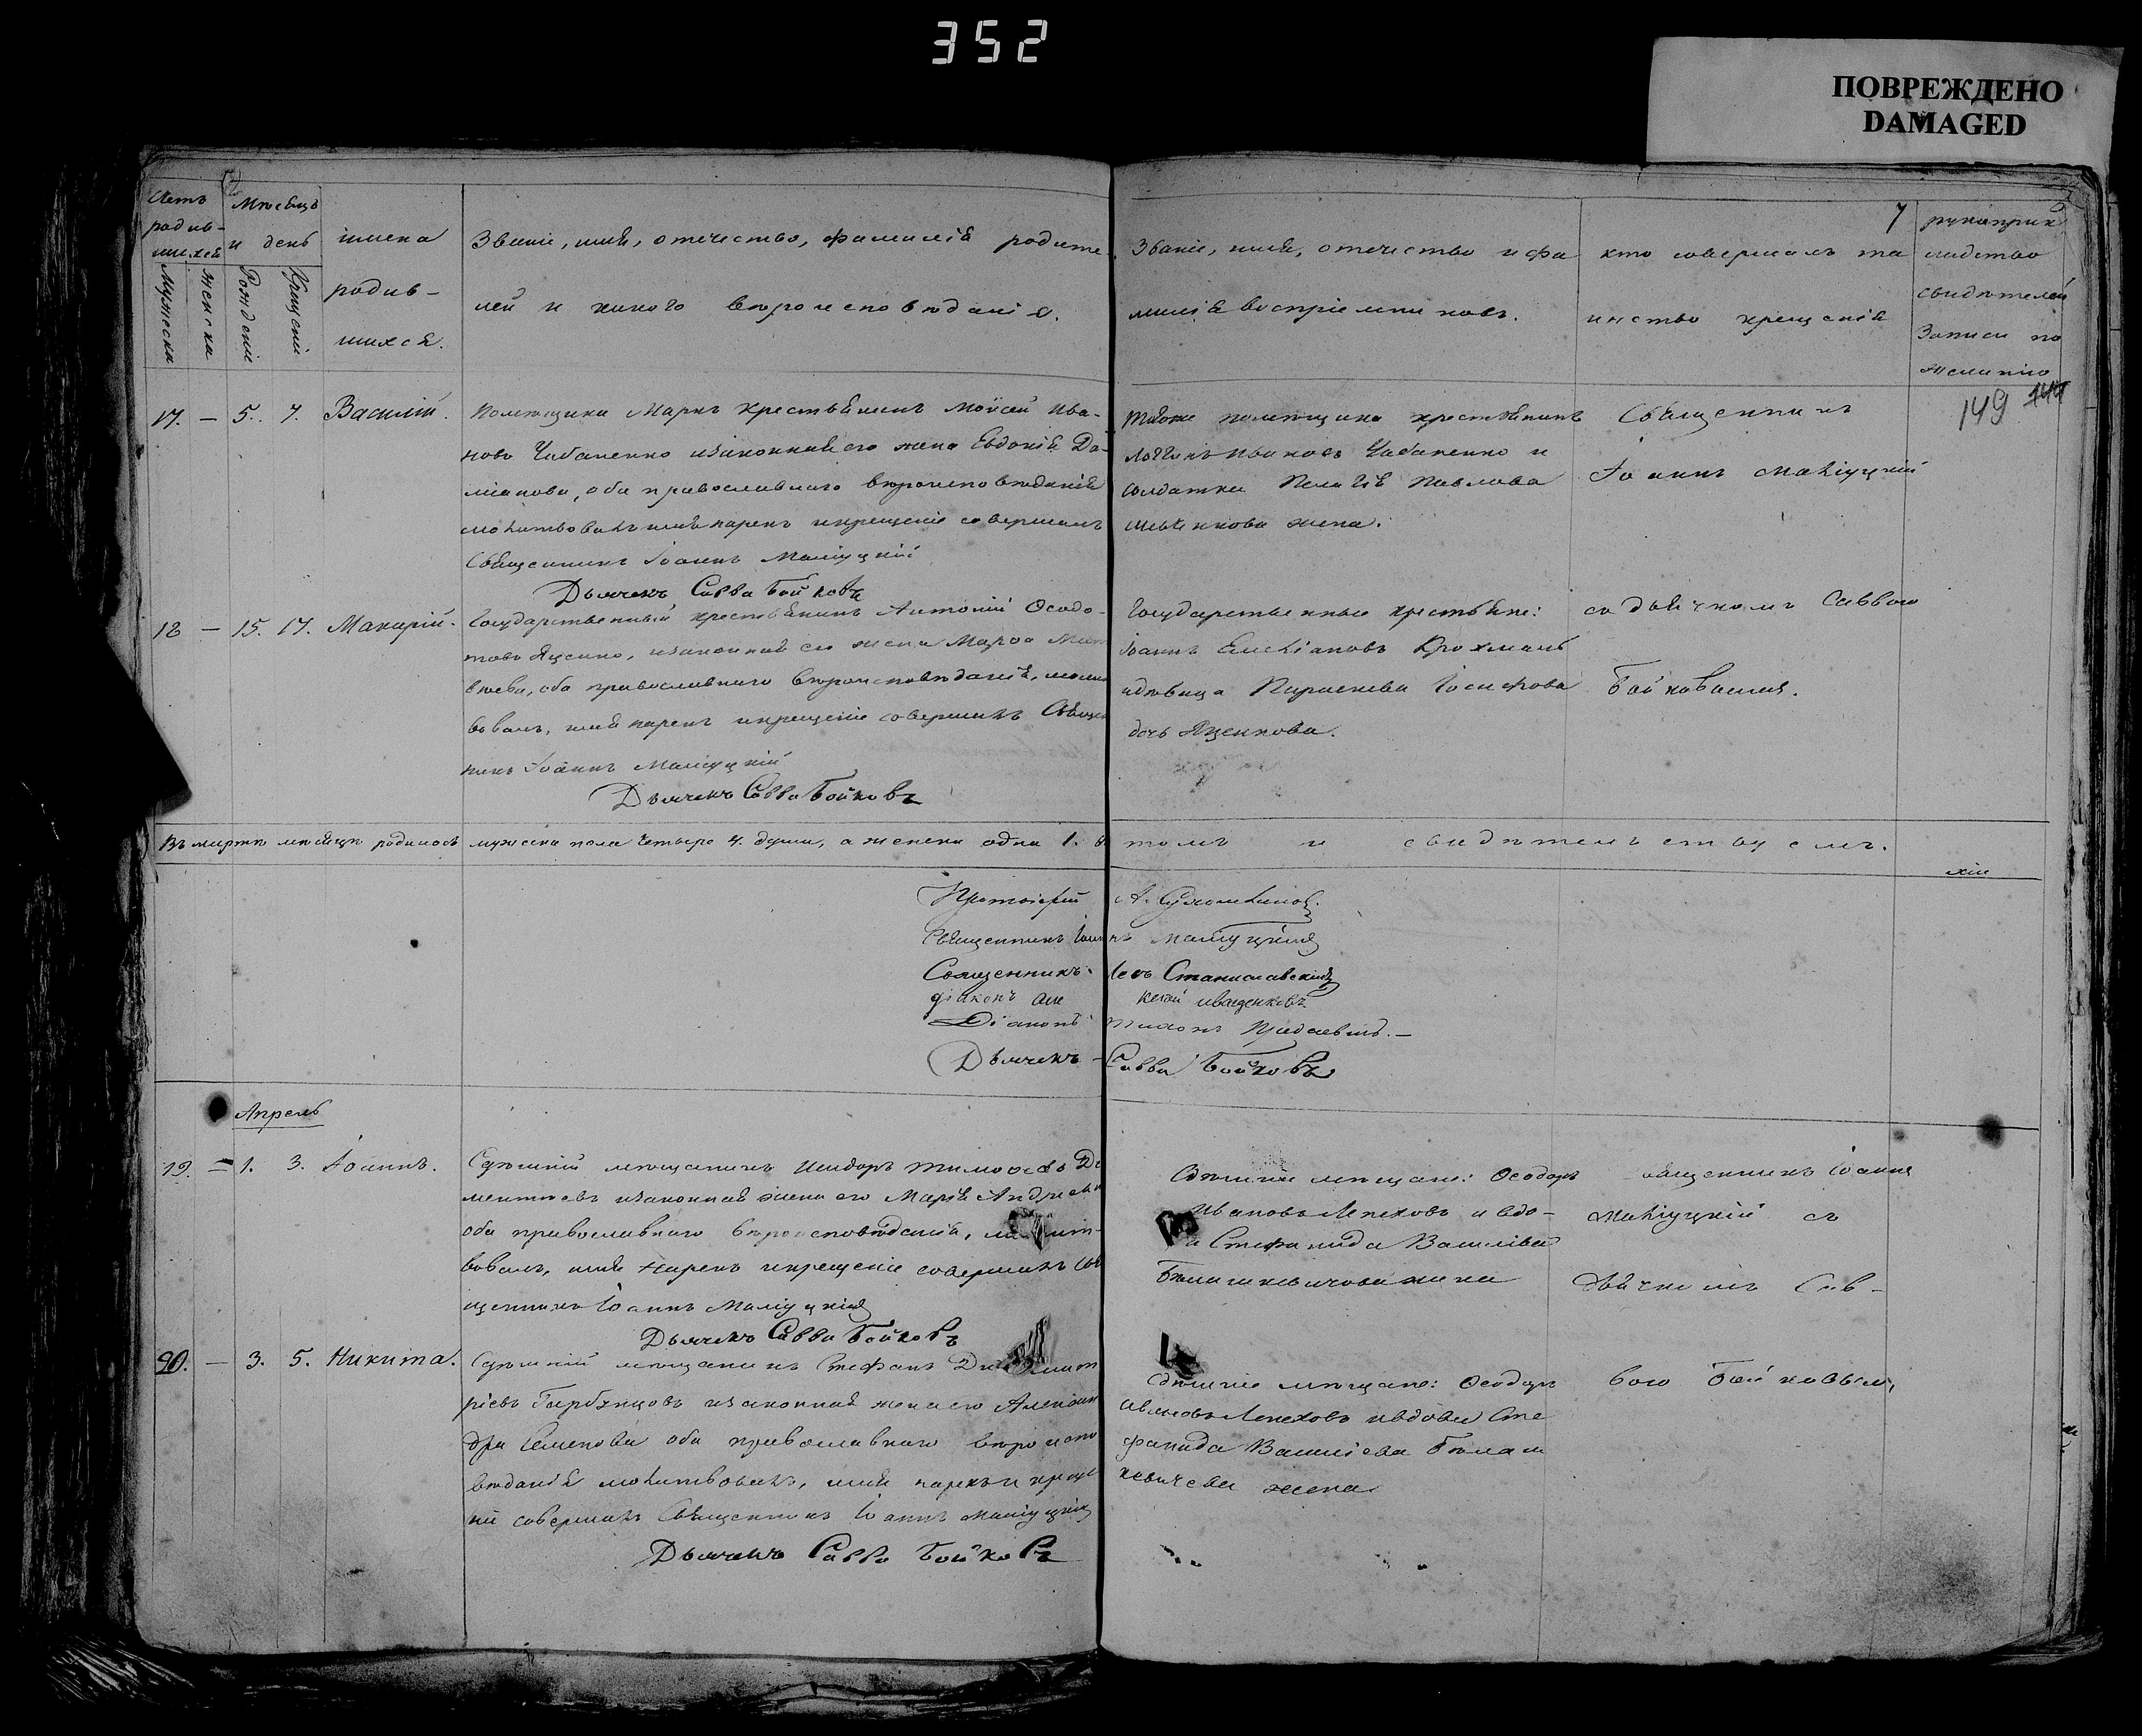 352
ПОВРЕЖДЕНО
DAMAGED
Летъ родив-шихся
Мужеска
Женска
Мѣсяцъ и день
Рожденія
Крещенія
имена
родив-
шихся.
Званіе, имя, отечество, фамилія родите-
лей и какого вѣроисповѣданія.
Званіе, имя, отечество и фа
милія воспріемниковъ.
7
кто совершалъ та
инство крещенія
рукоприк
ладство
свидѣтелей
записи по
желанію
149
17. — 5. 7. Василій.
Помѣщика Марка крестьянинъ Моисей Ива-
новъ Чабаненко изаконная его жена Евдокія Да-
міанова, оба православнаго вѣроисповѣданія
молитвовалъ имя нарекъ икрещеніе совершалъ
Священникъ Іоаннъ Маліуцкій
Дьячекъ Савва Бойковъ
помѣщика крестьянинъ
Ивановъ Чабаненко и
солдатка Пелагія Павлова
жена.
Священникъ
Іоаннъ Маліуцкій
18 — 15. 17. Макарій.
Государственный крестьянинъ Антоній Ѳеодо-
товъ Яценко, изаконная его жена Марѳа Мат
вѣева, оба православнаго вѣроисповѣданія, молит
вовалъ, имя нарекъ икрещеніе совершалъ Священ
никъ Іоаннъ Маліуцкій
Дьячекъ Савва Бойковъ
Государственные крестьяне:
Іоаннъ Емеліановъ Крохмаль
идѣвица Параскева Іосифова
дочь Яценкова.
со дьячкомъ Саввою
Бойковымъ.
Въ мартѣ мѣсяцѣ родилось мужеска пола четыре 4. души, а женска одна 1. в томъ и свидѣтельствуемъ.
Протоіерей А. Сухомлиновъ.
Священникъ Іоаннъ Маліуцкій
Священникъ Левъ Станиславскій
діаконъ Алексій Иваденковъ
Діаконъ Тихонъ
Дьячекъ — Савва Бойковъ
Апрель
19. — 1. 3. Іоаннъ.
Сдѣшній мѣщанинъ Исидоръ Тимоѳеевъ Де
ментьевъ изаконная жена его Марія Андреева
оба православнаго вѣроисповѣданія, молит-
вовалъ, имя нарекъ икрещеніе совершалъ Свя
щенникъ Іоаннъ Маліуцкій
Дьячекъ Савва Бойковъ
Сдѣшніи мѣщане: Ѳеодоръ
Ивановъ Лепеховъ ивдо-
а Стефанида Василіева
жена
священникъ Іоаннъ
Маліуцкій съ
дьячкомъ Сав-
20. — 3. 5. Никита.
Сдѣшній мѣщанинъ Стефанъ Димит
ріевъ Гарбузцовъ изаконная жена его Алексан
дра Семенова оба православнаго вѣроиспо
вѣданія молитвовалъ, имя нарекъ и креще
ніе совершалъ Священникъ Іоаннъ Маліуцкій
Дьячекъ Савва Бойковъ
Сдѣшніе мѣщане: Ѳеодоръ
Ивановъ Лепеховъ ивдова Сте
фанида Василіева Бѣлаш
кевичева жена
вою Бойковымъ,